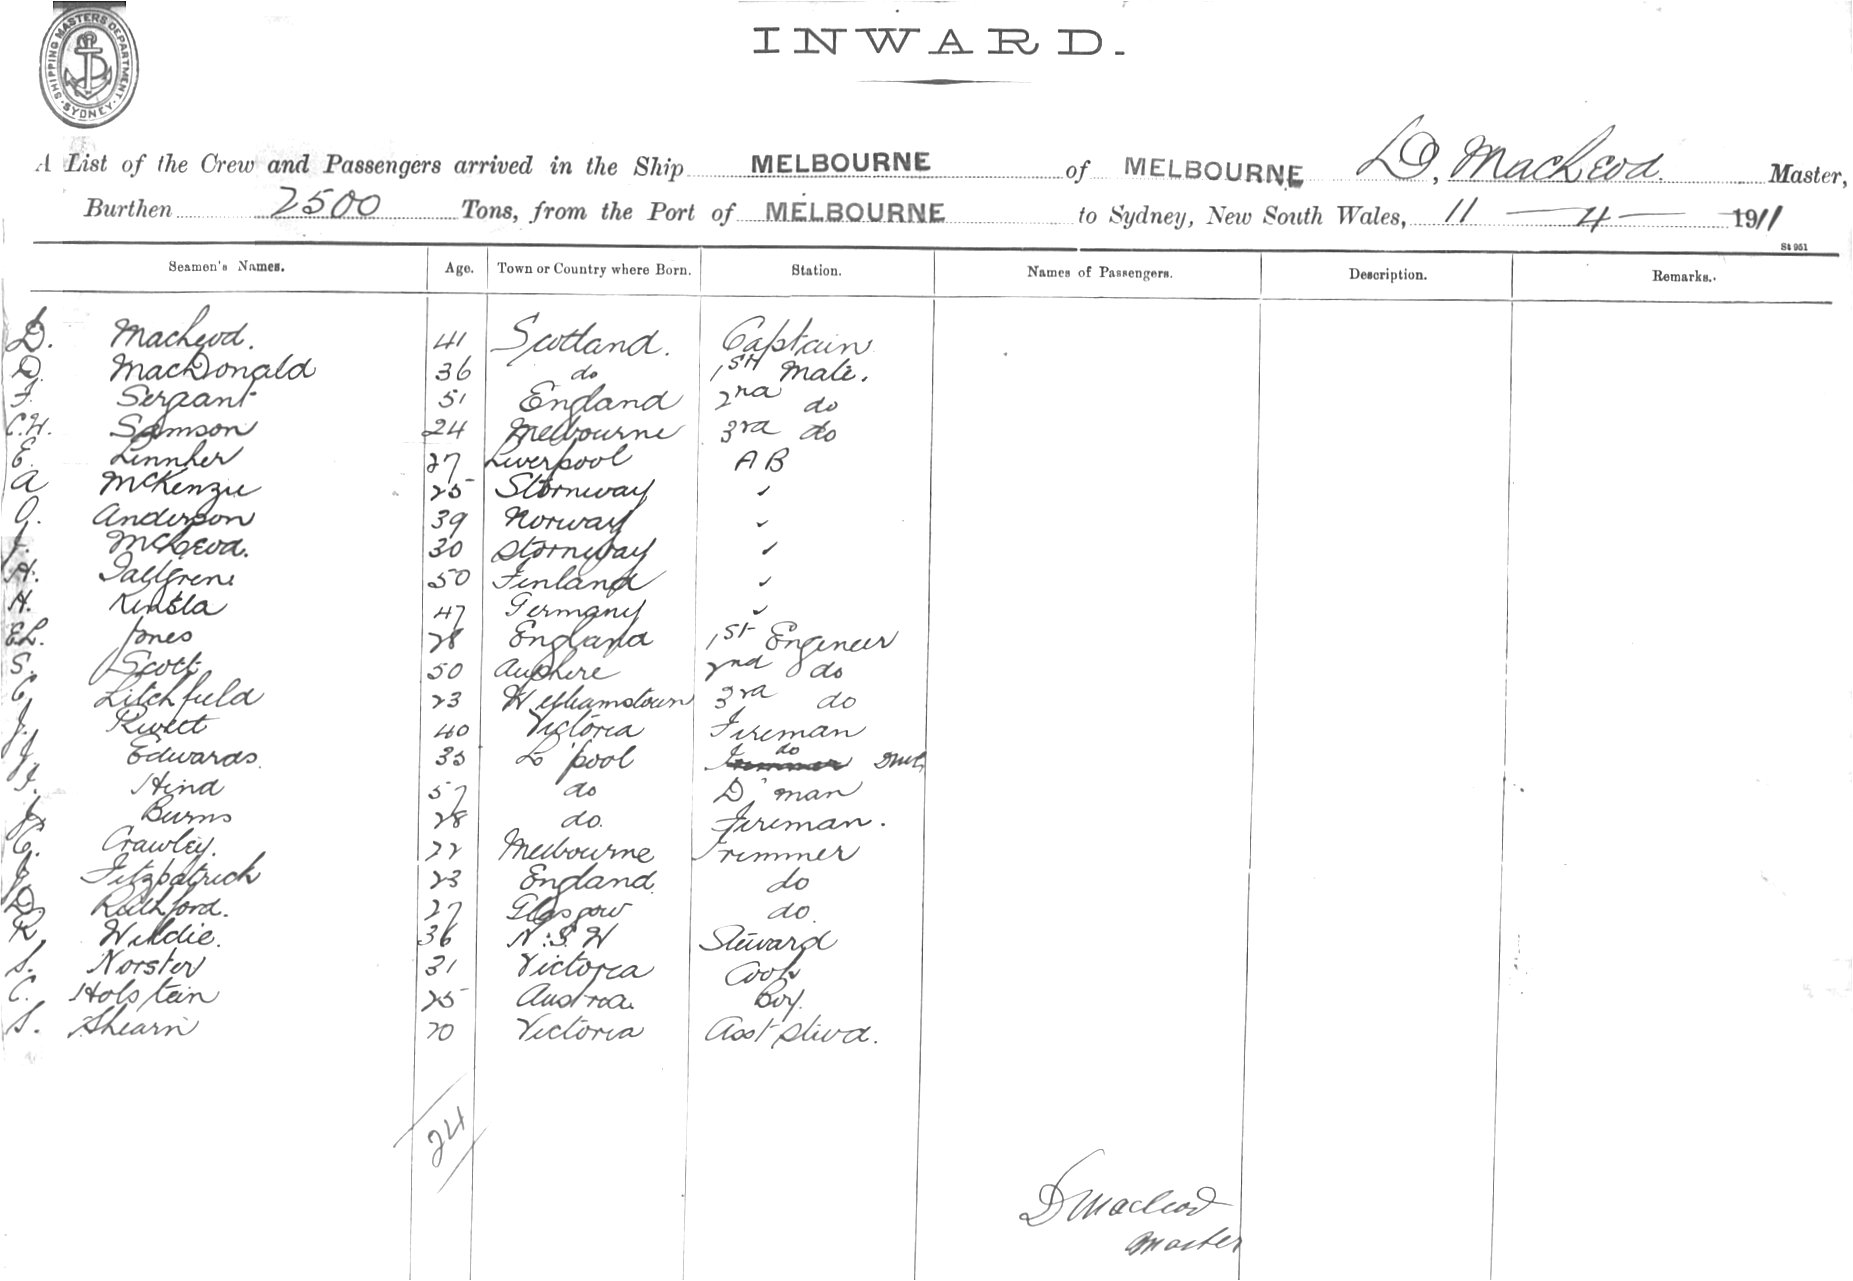 SHIPPING MASTERS DEPARTMENT. SYDNEY
INWARD.
A List of the Crew and Passengers arrived in the Ship MELBOURNE of MELBOURNE D. MacLeod. Master,
Burthen 2500 Tons, from the Port of MELBOURNE to Sydney, New South Wales, 11 — 4 — 1911
St 951
Seamen's Names. Age. Town or Country where Born. Station. Names of Passengers. Description. Remarks.
D. Macleod. 41 Scotland. Captain
D. MacDonald 36 do 1st Mate.
F. Sergant 51 England 2nd do
C.H. Samson 24 Melbourne 3rd do
E. Linnher 27 Liverpool AB
A McKenzie 25 Stornway ✓
O. Anderson 39 Norway ✓
J. McLeod. 30 Stornway ✓
H. 50 Finland ✓
H. Kinsla 47 Germany ✓
E.L. Jones 28 England 1st Engineer
S. Scott 50 2nd do
C Litchfield 23 Williamstown 3rd do
J. Rivett 40 Victoria Fireman
J Edwards. 35 L'pool do
J. Hind 57 do D'man
J. Burns 28 do. Fireman.
C. Crawley. 22 Melbourne Trimmer
J. Fitzpatrick 23 England. do
D. 27 Glasgow do.
R Wildie. 36 N.S.W Steward
S. Norster 31 Victoria Cook
C. Holstein 25 Austria. Boy.
S. Shearn 20 Victoria Asst Stewd.
24
D Macleod
Master